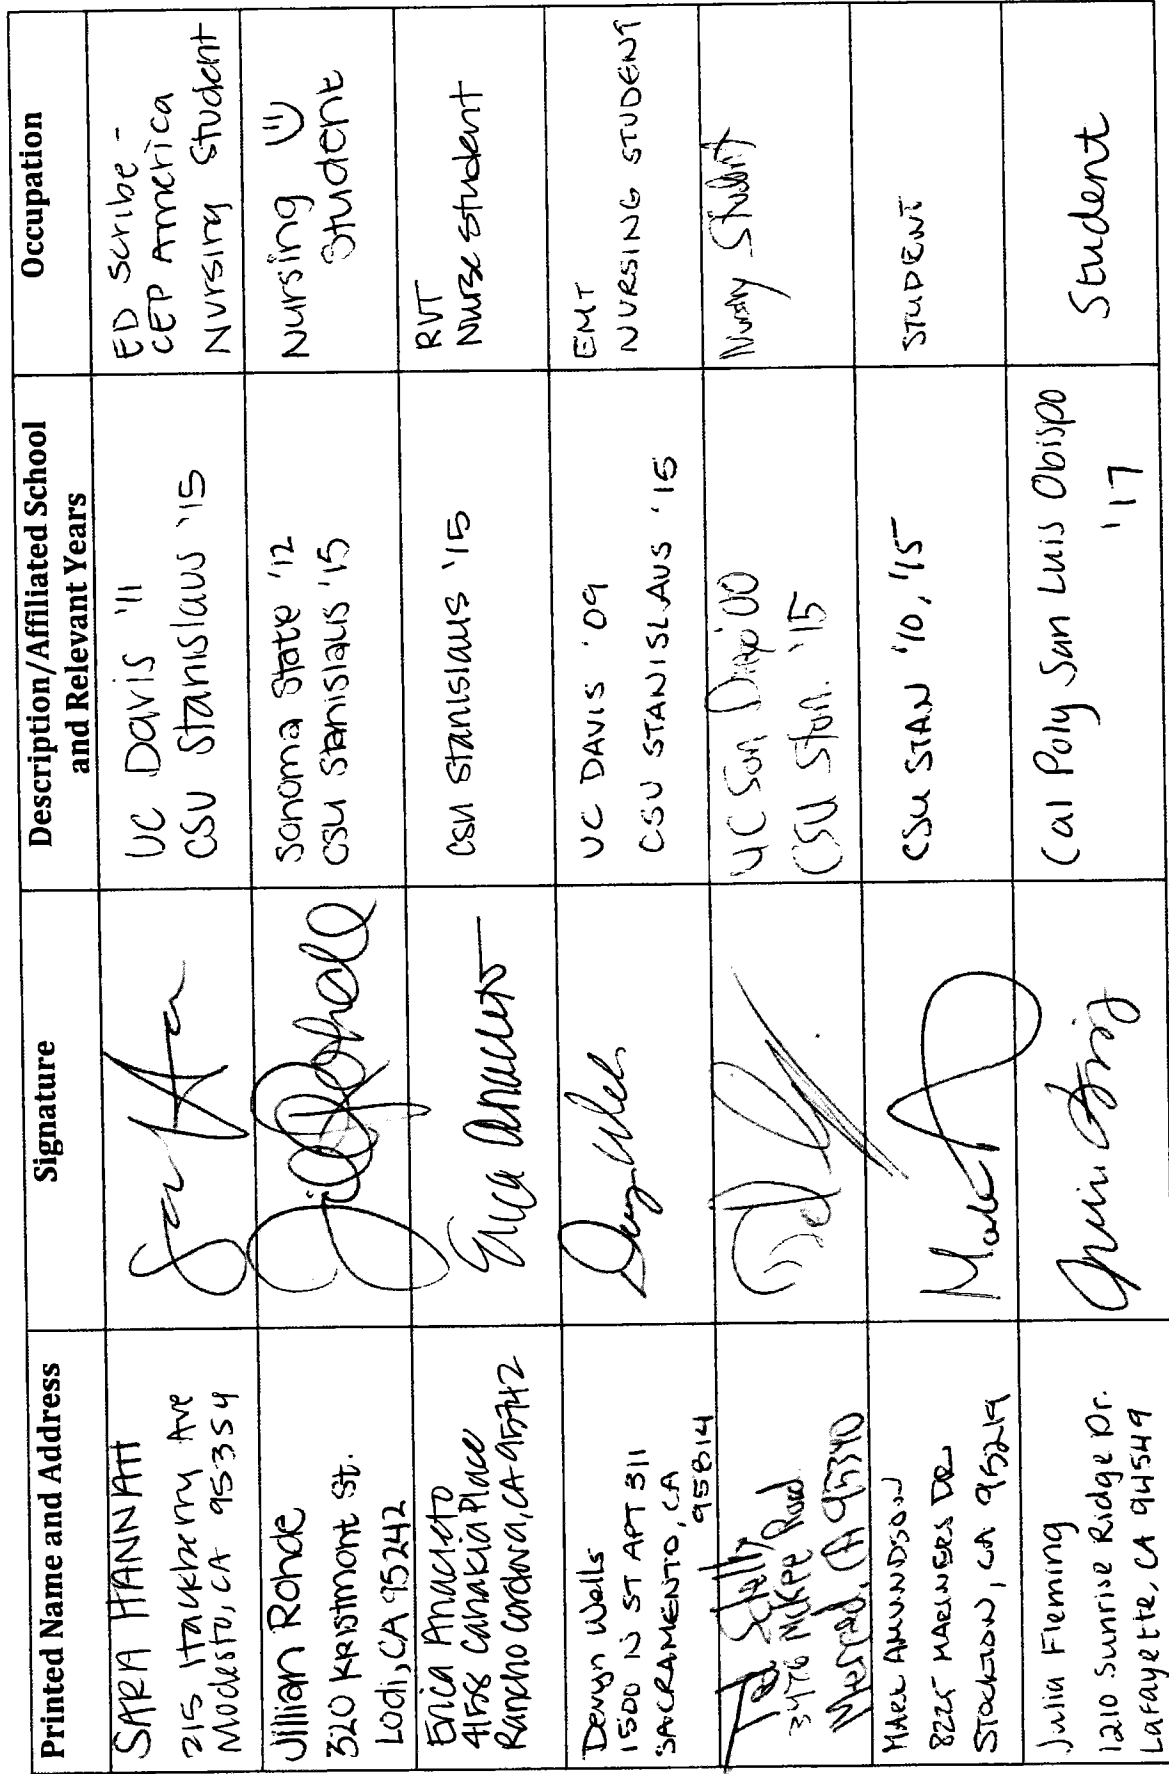 Printed Name and Address
Signature
Description/Affiliated School
and Relevant Years
Occupation
SARA HANNAH
215 Hackberry Ave
Modesto, CA 95354
UC Davis '11
CSU Stanislaus '15
ED Scribe -
CEP America
Nursing Student
Jillian Rohde
320 Kristmont St.
Lodi, CA 95242
Sonoma State '12
CSU Stanislaus '15
Nursing
Student
Erica Anacleto
4158 Canakia Place
Rancho Cordova, CA 95742
Erica Anacleto
CSU Stanislaus '15
RVT
Nurse Student
Devyn Wells
1500 N ST APT 311
SACRAMENTO, CA
95814
UC DAVIS '09
CSU STANISLAUS '15
EMT
NURSING STUDENT
3476 McKee Road
Merced, CA 95340
UC San Diego '00
CSU Stan. '15
Nursing Student
MARK AMUNDSON
8225 MARINERS DR
STOCKTON, CA 95219
CSU STAN '10, '15
STUDENT
Julia Fleming
1210 Sunrise Ridge Dr.
Lafayette, CA 94549
Cal Poly San Luis Obispo
'17
Student